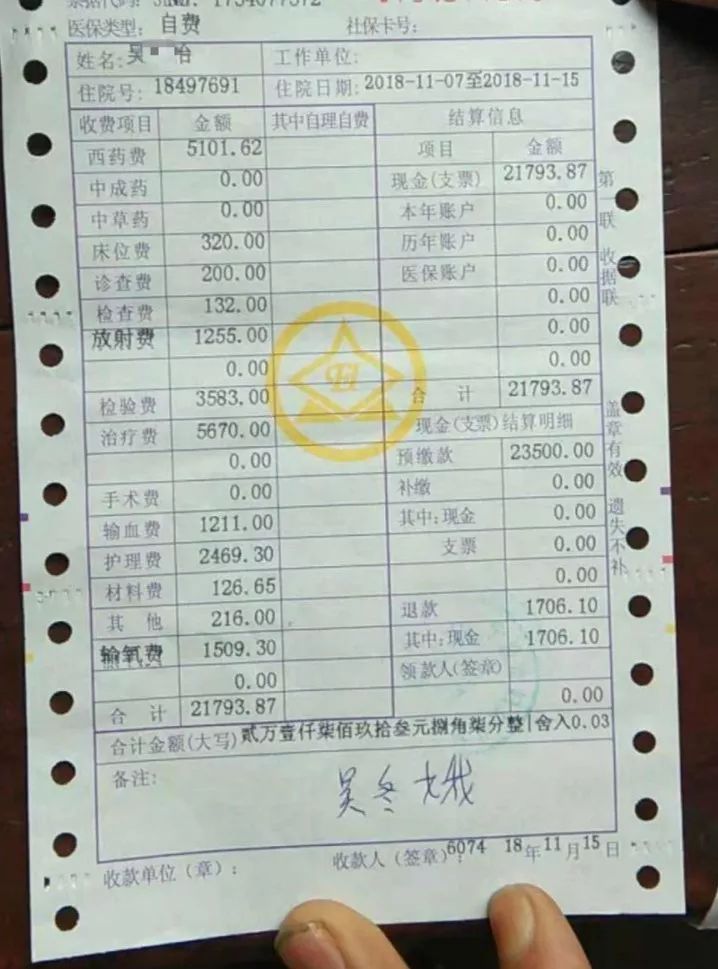 票据代码: 1754077372
医保类型: 自费 社保卡号:
姓名: 吴 怡 工作单位:
住院号: 18497691 住院日期: 2018-11-07至2018-11-15
收费项目 金额 其中自理自费 结算信息
西药费 5101.62 项目 金额
中成药 0.00 现金(支票) 21793.87
中草药 0.00 本年账户 0.00
床位费 320.00 历年账户 0.00
诊查费 200.00 医保账户 0.00
检查费 132.00 0.00
放射费 1255.00 0.00
0.00 0.00
检验费 3583.00 合计 21793.87
治疗费 5670.00 现金(支票)结算明细
0.00 预缴款 23500.00
手术费 0.00 补缴 0.00
输血费 1211.00 其中:现金 0.00
护理费 2469.30 支票 0.00
材料费 126.65 0.00
其他 216.00 退款 1706.10
输氧费 1509.30 其中:现金 1706.10
0.00 领款人(签章)
合计 21793.87 0.00
合计金额(大写) 贰万壹仟柒佰玖拾叁元捌角柒分整|舍入0.03
备注:
吴冬娥
收款单位(章): 收款人(签章): 6074 18年11月15日
第 联 收据联
盖章有效 遗失不补